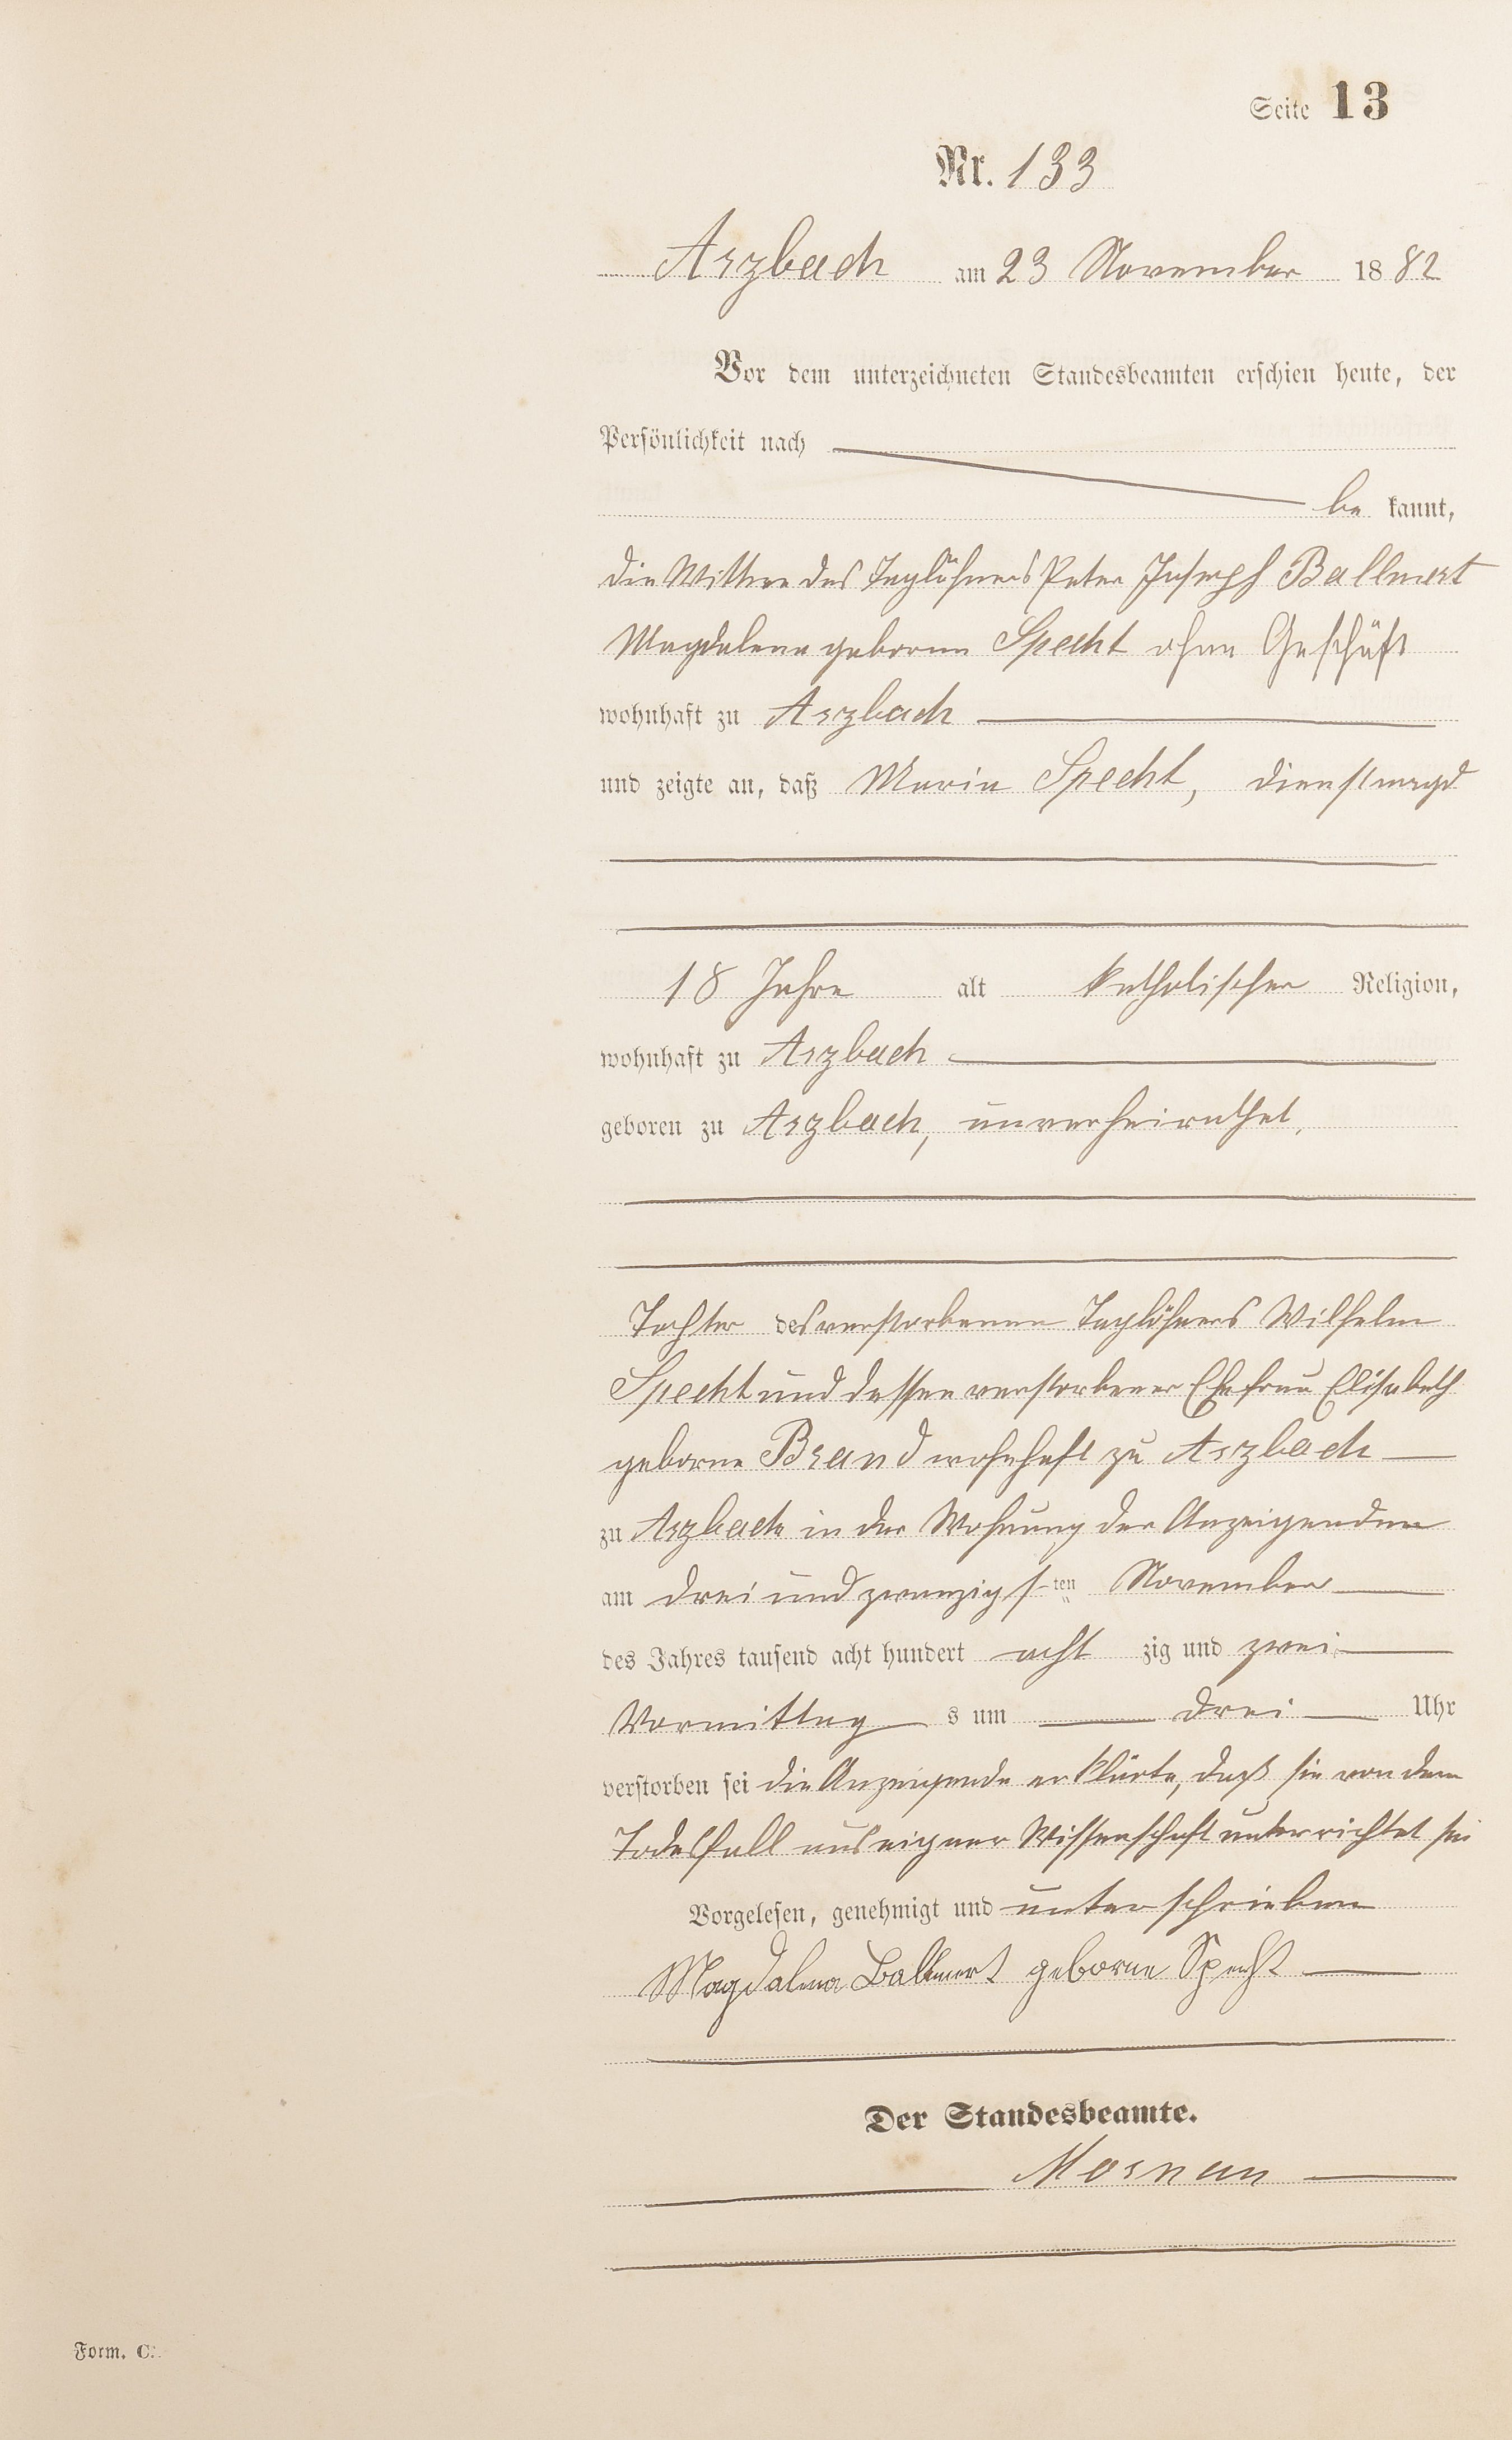 Seite 13
Nr. 133
Arzbach am 23 November 1882
Vor dem unterzeichneten Standesbeamten erschien heute, der
Persönlichkeit nach
be kannt,
die Wittwe des Taglöhners Peter Joseph Ballmert
Magdalena geborne Specht ohne Geschäft
wohnhaft zu Arzbach
und zeigte an, daß Maria Specht, Dienstmagd
18 Jahre alt katholischer Religion,
wohnhaft zu Arzbach
geboren zu Arzbach, unverheirathet,
Tochter des verstorbenen Taglöhners Wilhelm
Specht und dessen verstorbener Ehefrau Elisabeth
geborne Brand wohnhaft zu Arzbach
zu Arzbach in der Wohnung der Anzeigenden
am drei und zwanzigsten November
des Jahres tausend acht hundert acht zig und zwei
Vormittag s um drei Uhr
verstorben sei die Anzeigende erklärte, daß sie von dem
Todesfall aus eigner Wissenschaft unterrichtet sei
Vorgelesen, genehmigt und unterschrieben
Magdalena Ballmert geborne Specht
Der Standesbeamte.
Form. C.